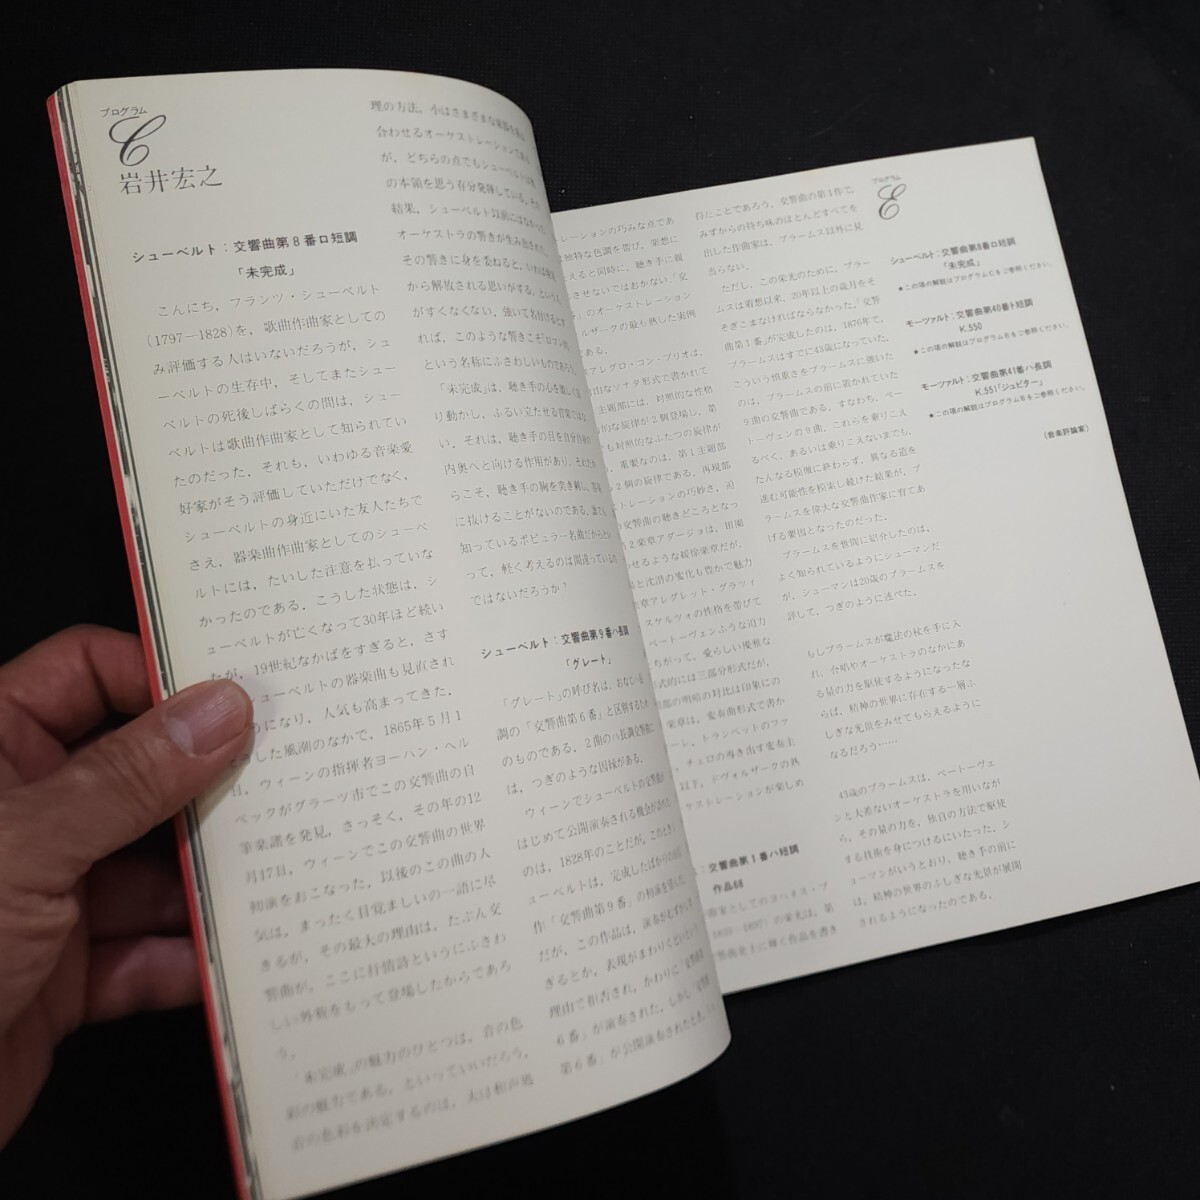 プログラム
C
岩井宏之
シューベルト：交響曲第8番ロ短調
「未完成」
こんにち，フランツ・シューベルト
(1797—1828)を，歌曲作曲家としての
み評価する人はいないだろうが，シュ
ーベルトの生存中，そしてまたシュー
ベルトの死後しばらくの間は，シュー
ベルトは歌曲作曲家として知られてい
たのだった．それも，いわゆる音楽愛
好家がそう評価していただけでなく，
シューベルトの身近にいた友人たちで
さえ，器楽曲作曲家としてのシューベ
ルトには，たいした注意を払っていな
かったのである．こうした状態は，シ
ューベルトが亡くなって30年ほど続い
たが，19世紀なかばをすぎると，さす
シューベルトの器楽曲も見直され
うになり，人気も高まってきた．
した風潮のなかで，1865年5月1
日，ウィーンの指揮者ヨーハン・ヘル
ベックがグラーツ市でこの交響曲の自
筆楽譜を発見，さっそく，その年の12
月17日，ウィーンでこの交響曲の世界
初演をおこなった．以後のこの曲の人
気は，まったく目覚ましいの一語に尽
きるが，その最大の理由は，たぶん交
響曲が，ここに抒情詩というにふさわ
しい外枠をもって登場したからであろ
う．
「未完成」の魅力のひとつは，音の色
彩の魅力である，といっていいだろう．
音の色彩を決定するのは，大は和声処
理の方法，小はさまざまな楽器を組み
合わせるオーケストレーションである
が，どちらの点でもシューベルトは彼
の本領を思う存分発揮している．その
結果，シューベルト以前にはなかった
オーケストラの響きが生み出された．
その響きに身を委ねると，いわば現実
から解放される思いがする，といった
がすくなくない．強いて名付けるとす
れば，このような響きこそ「ロマン的」
という名称にふさわしいものであろう．
「未完成」は，聴き手の心を激しく揺
り動かし，ふるい立たせる音楽ではな
い．それは，聴き手の目を自分自身の
内奥へと向ける作用があり，それだか
らこそ，聴き手の胸を突き刺し，容易
に抜けることがないのである．誰でも
知っているポピュラー名曲だからとい
って，軽く考えるのは間違っているの
ではないだろうか？
シューベルト：交響曲第9番ハ長調
「グレート」
「グレート」の呼び名は，おなじハ長
調の「交響曲第6番」と区別するため
のものである．2曲のハ長調交響曲に
は，つぎのような因縁がある．
ウィーンでシューベルトの交響曲が
はじめて公開演奏される機会が訪れた
のは，1828年のことだが，このときシ
ューベルトは，完成したばかりの自信
作「交響曲第9番」の初演を望んだ．
だが，この作品は，演奏がむずかしす
ぎるとか，表現がまわりくどいという
理由で拒否され，かわりに「交響曲第
6番」が演奏された．しかし「交響曲
第6番」が公開演奏されたとき，シュ
レーションの巧みな点であ
独特な色調を帯び，楽想に
えると同時に，聴き手に親
させないではおかない．「交
」のオーケストレーション
ルザークの最も熟した実例
である．
アレグロ・コン・ブリオは，
自由なソナタ形式で書かれて
主題部には，対照的な性格
的な旋律が2個登場し，第
も対照的なふたつの旋律が
．重要なのは，第1主題部
2個の旋律である．再現部
ストレーションの巧妙さ，迫
の交響曲の聴きどころとなっ
2楽章アダージョは，田園
せるような緩徐楽章だが，
と沈潜の変化も豊かで魅力
楽章アレグレット・グラツィ
スケルツォの性格を帯びて
ベートーヴェンふうな迫力
ちがって，愛らしい優雅な
式的には三部分形式だが，
部の明暗の対比は印象にの
楽章は，変奏曲形式で書か
ーレ，トランペットのファ
，チェロの導き出す変奏主
以上，ドヴォルザークの熟
ケストレーションが楽しめ
：交響曲第1番ハ短調
作品68
曲家としてのヨハネス・ブ
1833—1897）の栄光は，第
響曲史上に輝く作品を書き
得たことであろう．交響曲の第1作で，
みずからの持ち味のほとんどすべてを
出した作曲家は，ブラームス以外に見
当らない．
ただし，この栄光のために，ブラー
ムスは着想以来，20年以上の歳月をそ
そぎこまなければならなかった．「交響
曲第1番」が完成したのは，1876年で，
ブラームスはすでに43歳になっていた．
こういう慎重さをブラームスに強いた
のは，ブラームスの前に置かれていた
9曲の交響曲である．すなわち，ベー
トーヴェンの9曲，これらを乗りこえ
るべく，あるいは乗りこえないまでも，
たんなる模倣に終わらず，異なる道を
進む可能性を模索し続けた結果が，ブ
ラームスを偉大な交響曲作家に育てあ
げる要因となったのだった．
ブラームスを世間に紹介したのは，
よく知られているようにシューマンだ
が，シューマンは20歳のブラームスを
評して，つぎのように述べた．
もしブラームスが魔法の杖を手に入
れ，合唱やオーケストラのなかにあ
る量の力を駆使するようになったな
らば，精神の世界に存在する一層ふ
しぎな光景をみせてもらえるように
なるだろう……
43歳のブラームスは，ベートーヴェ
ンと大差ないオーケストラを用いなが
ら，その量の力を，独自の方法で駆使
する技術を身につけるにいたった．シ
ューマンがいうとおり，聴き手の前に
は，精神の世界のふしぎな光景が展開
されるようになったのである．
プログラム
E
シューベルト：交響曲第8番ロ短調
「未完成」
★この項の解説はプログラムCをご参照ください．
モーツァルト：交響曲第40番ト短調
K.550
★この項の解説はプログラムBをご参照ください．
モーツァルト：交響曲第41番ハ長調
K.551「ジュピター」
★この項の解説はプログラムBをご参照ください．
（音楽評論家）